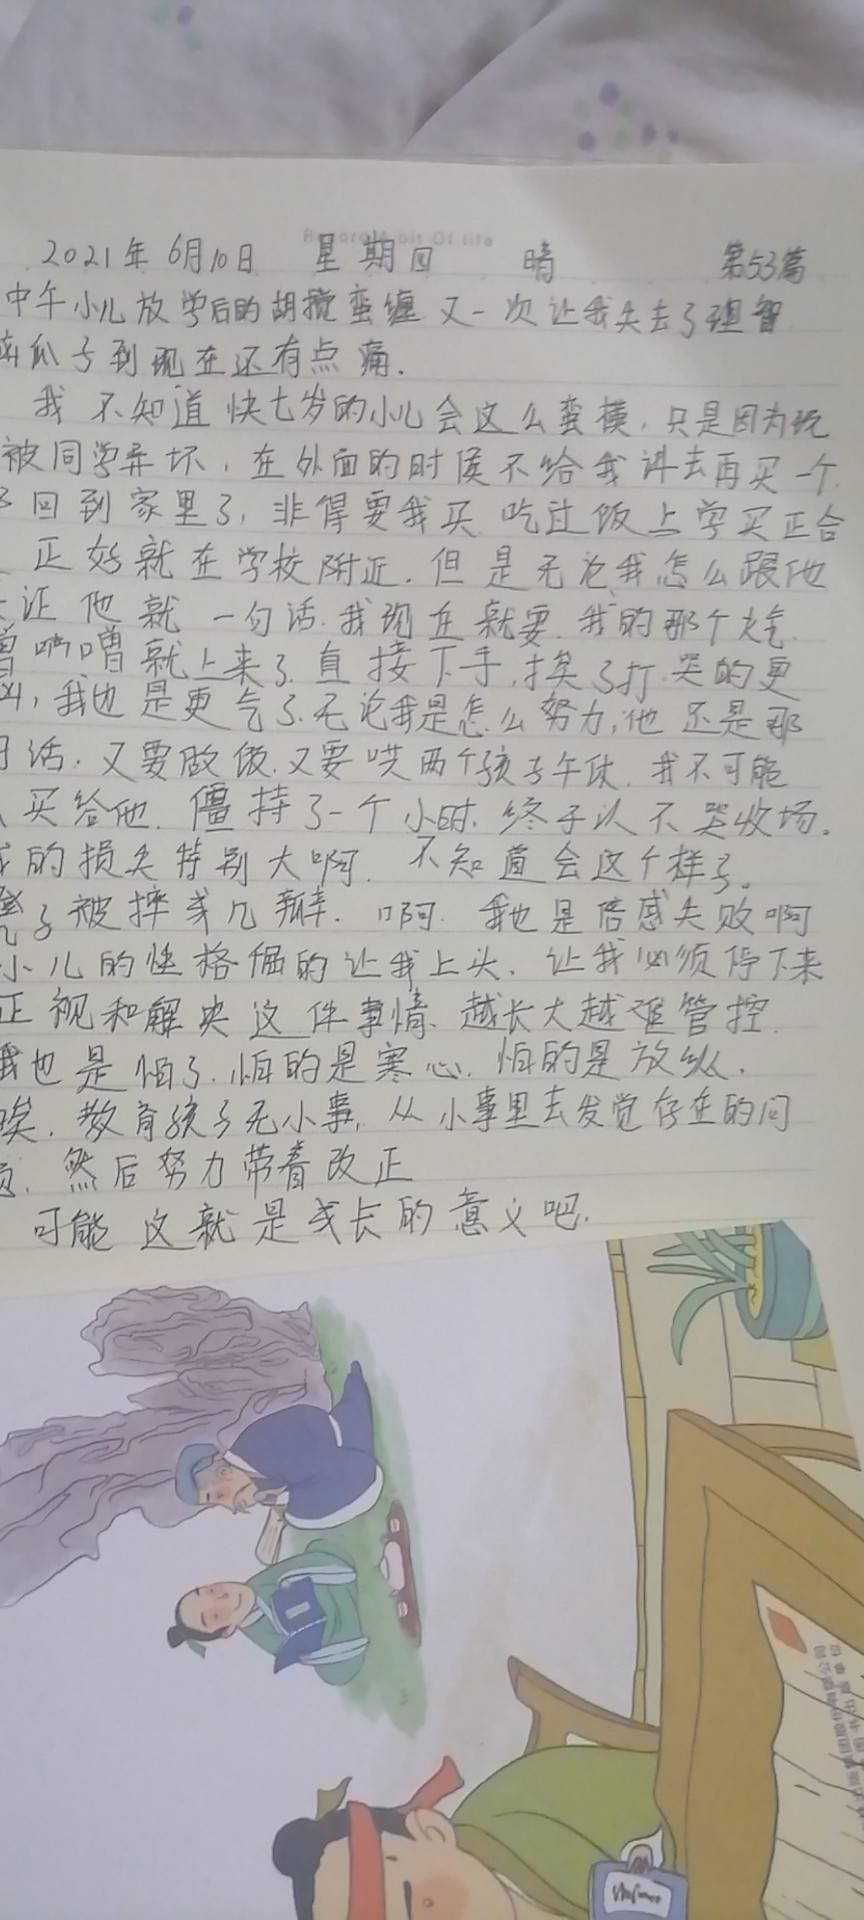 Record A bit Of life
2021年6月10日 星期四 晴 第53篇
中午小儿放学后的胡搅蛮缠又一次让我失去了理智
瓜子到现在还有点痛.
我不知道快七岁的小儿会这么蛮横,只是因为玩
被同学弄坏,在外面的时候不给我讲去再买一个
回到家里了,非得要我买.吃过饭上学买正合
正好就在学校附近.但是无论我怎么跟他
证他就一句话.我现在就要.我的那个火气
噌噌噌就上来了.直接下手,挨了打.哭的更
凶,我也是更气了.无论我是怎么努力,他还是那
句话.又要做饭.又要哄两个孩子午休.我不可能
买给他.僵持了一个小时.终于以不哭收场.
我的损失特别大啊.不知道会这个样了。
凳子被摔成几瓣.啊.我也是倍感失败啊
小儿的性格倔的让我上头.让我必须停下来
正视和解决这件事情.越长大越难管控.
我也是怕了.怕的是寒心.怕的是放纵.
唉.教育孩子无小事,从小事里去发觉存在的问
页.然后努力带着改正
可能这就是成长的意义吧.